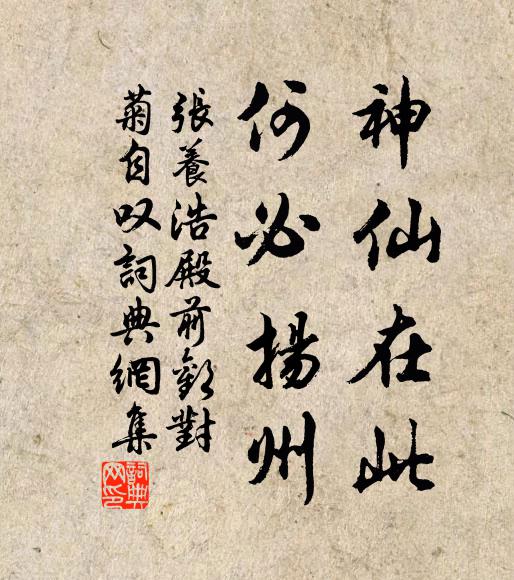 神仙在此
何必揚州
張養浩殿前歡對
菊自叹詞典網集
詞典網印